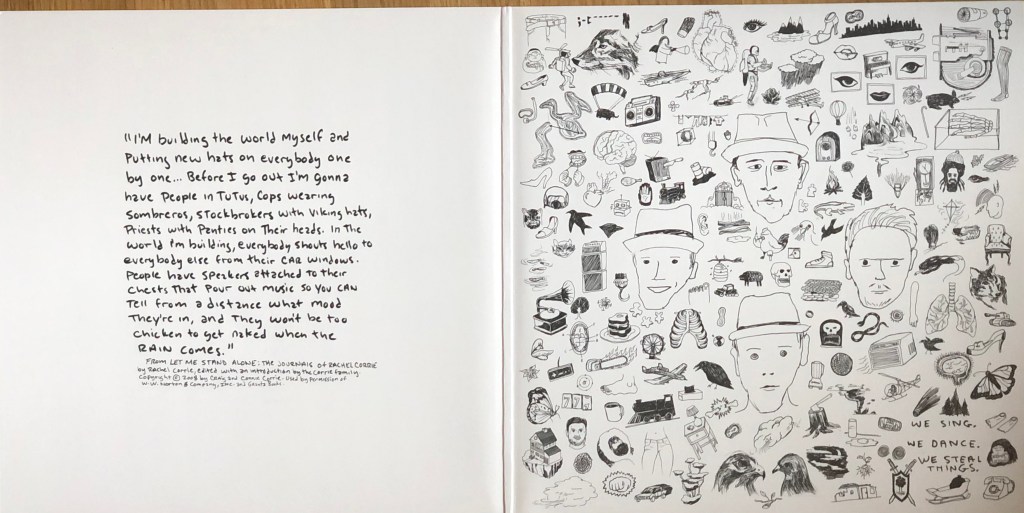 "I'm building the world myself and
putting new hats on everybody one
by one... Before I go out I'm gonna
have people in tutus, cops wearing
sombreros, stockbrokers with viking hats,
priests with panties on their heads. In the
world I'm building, everybody shouts hello to
everybody else from their car windows.
People have speakers attached to their
chests that pour out music so you can
tell from a distance what mood
they're in, and they won't be too
chicken to get naked when the
rain comes."
FROM LET ME STAND ALONE: THE JOURNALS OF RACHEL CORRIE
by Rachel Corrie, edited with an introduction by the Corrie Family
Copyright © 2008 by Craig and Cindy Corrie. Used by permission of
W.W. Norton & Company, Inc. and Granta Books.
WE SING.
WE DANCE.
WE STEAL
THINGS.